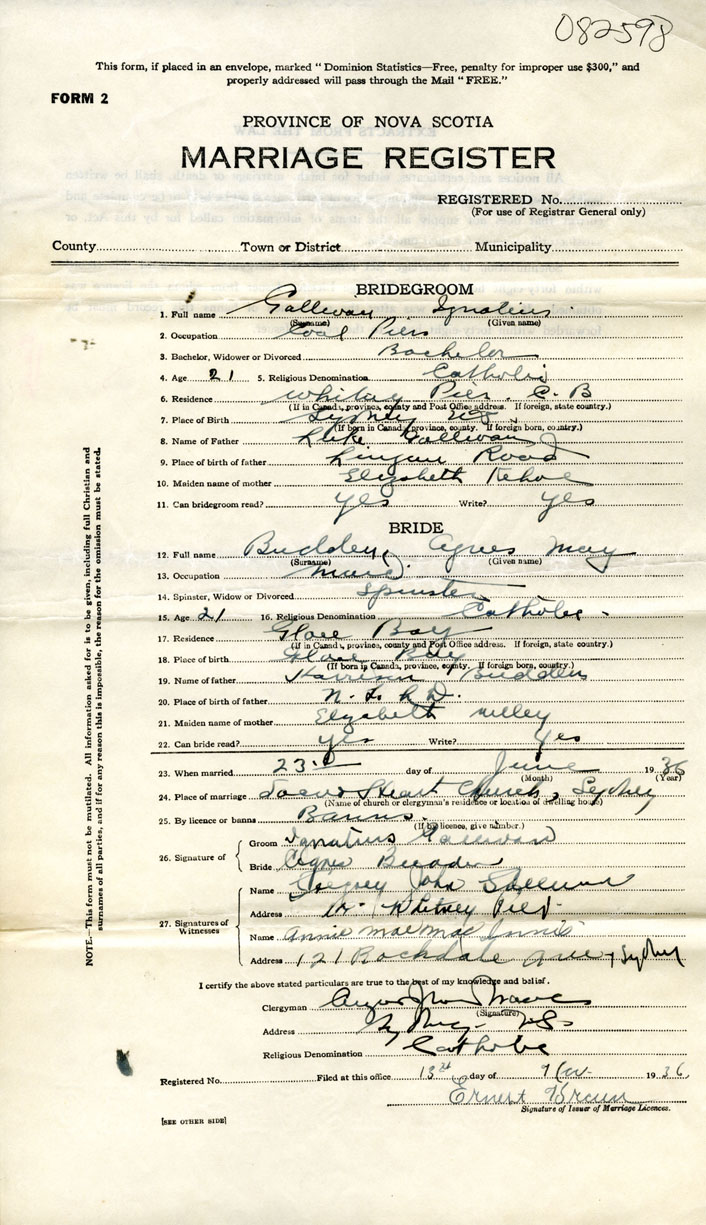 082598
This form, if placed in an envelope, marked "Dominion Statistics—Free, penalty for improper use $300," and
properly addressed will pass through the Mail "FREE."
FORM 2
PROVINCE OF NOVA SCOTIA
MARRIAGE REGISTER
REGISTERED No.
(For use of Registrar General only)
County Town or District Municipality
BRIDEGROOM
1. Full name Gallivan Ignatius
(Surname) (Given name)
2. Occupation Coal Piers
3. Bachelor, Widower or Divorced Bachelor
4. Age 21 5. Religious Denomination Catholic
6. Residence Whitney Pier, C. B
(If in Canada, province, county and Post Office address. If foreign, state country.)
7. Place of Birth Sydney
(If born in Canada, province, county. If foreign born, country.)
8. Name of Father Luke Gallivan
9. Place of birth of father Lingan Road
10. Maiden name of mother Elizabeth Kehoe
11. Can bridegroom read? yes Write? yes
BRIDE
12. Full name Budden, Agnes May
(Surname) (Given name)
13. Occupation Maid.
14. Spinster, Widow or Divorced Spinster
15. Age 21 16. Religious Denomination Catholic
17. Residence Glace Bay
(If in Canada, province, county and Post Office address. If foreign, state country.)
18. Place of birth Glace Bay
(If born in Canada, province, county. If foreign born, country.)
19. Name of father Harrison Budden
20. Place of birth of father
21. Maiden name of mother Elizabeth
22. Can bride read? yes Write? yes
23. When married 23 day of June 1936
(Month) (Year)
24. Place of marriage Sacred Heart Church, Sydney
(Name of church or clergyman's residence or location of dwelling house)
25. By licence or banns Banns.
(If by licence, give number.)
26. Signature of
Groom Ignatius Gallivan
Bride Agnes Budden
27. Signatures of Witnesses
Name John
Address Whitney Pier
Name Annie Mae MacInnis
Address 121 Rockdale Ave, Sydney
I certify the above stated particulars are true to the best of my knowledge and belief.
Clergyman
(Signature)
Address Sydney NS
Religious Denomination Catholic
Registered No. Filed at this office 13th day of 1936
Ernest
Signature of Issuer of Marriage Licences.
[SEE OTHER SIDE]
NOTE.—This form must not be mutilated. All information asked for is to be given, including full Christian and
surnames of all parties, and if for any reason this is impossible, the reason for the omission must be stated.